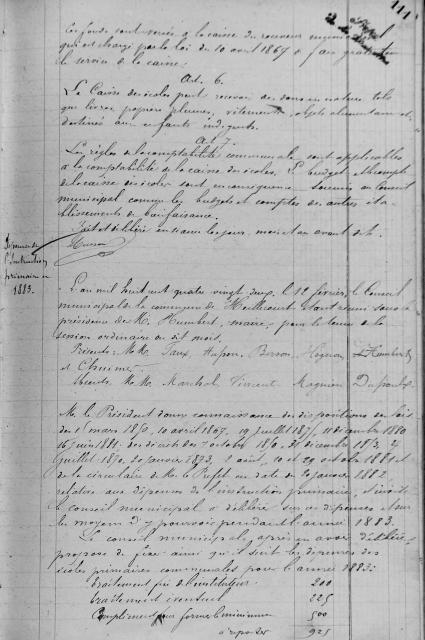 111
Les fonds sont versés à la caisse du receveur municipal
qui est chargé par la loi du 10 avril 1867 de faire gratuitement
le service de la caisse.
Art. 6.
La Caisse des écoles peut recevoir des dons en nature tels
que livres, papiers, plumes, vêtements, objets alimentaires
destinés aux enfants indigents.
Art. 7.
Les règles de la comptabilité communale sont applicables
à la comptabilité de la caisse des écoles. Le budget et le compte
de la caisse des écoles sont en conséquence soumis au Conseil
municipal comme les budgets et comptes des autres éta-
blissements de bienfaisance.
Fait et délibéré en séance les jour, mois et an avant dit.
Husson
Dépenses de
l'instruction
primaire en
1883.
L'an mil huit cent quatre vingt deux, le 12 février, le Conseil
municipal de la commune de étant réuni sous la
présidence de M. Humbert, maire, pour la tenue de la
session ordinaire du dit mois.
Présents: M.M. Husson, Humbert
et
Absents: M.M. Marchal, Vincent, Magnien
M. le Président donne connaissance des dispositions des lois
des 15 mars 1850, 10 avril 1867, 19 juillet 1875, décembre 1880
16 juin 1881, des décrets des 7 octobre 1850, 31 décembre 1853, 4
juillet 1870, 20 janvier 1873, 2 août, 10 et 29 octobre 1881 et
de la circulaire de M. le Préfet en date du 20 janvier 1882
relative aux dépenses de l'instruction primaire, il invite
le conseil municipal à délibérer sur ces dépenses et sur
les moyens d'y pourvoir pendant l'année 1883.
Le conseil municipal, après en avoir délibéré,
propose de fixer ainsi qu'il suit les dépenses des
écoles primaires communales pour l'année 1883:
Traitement fixe de l'instituteur 200
traitement éventuel 225
Complément pour former le minimum 500
à reporter 925